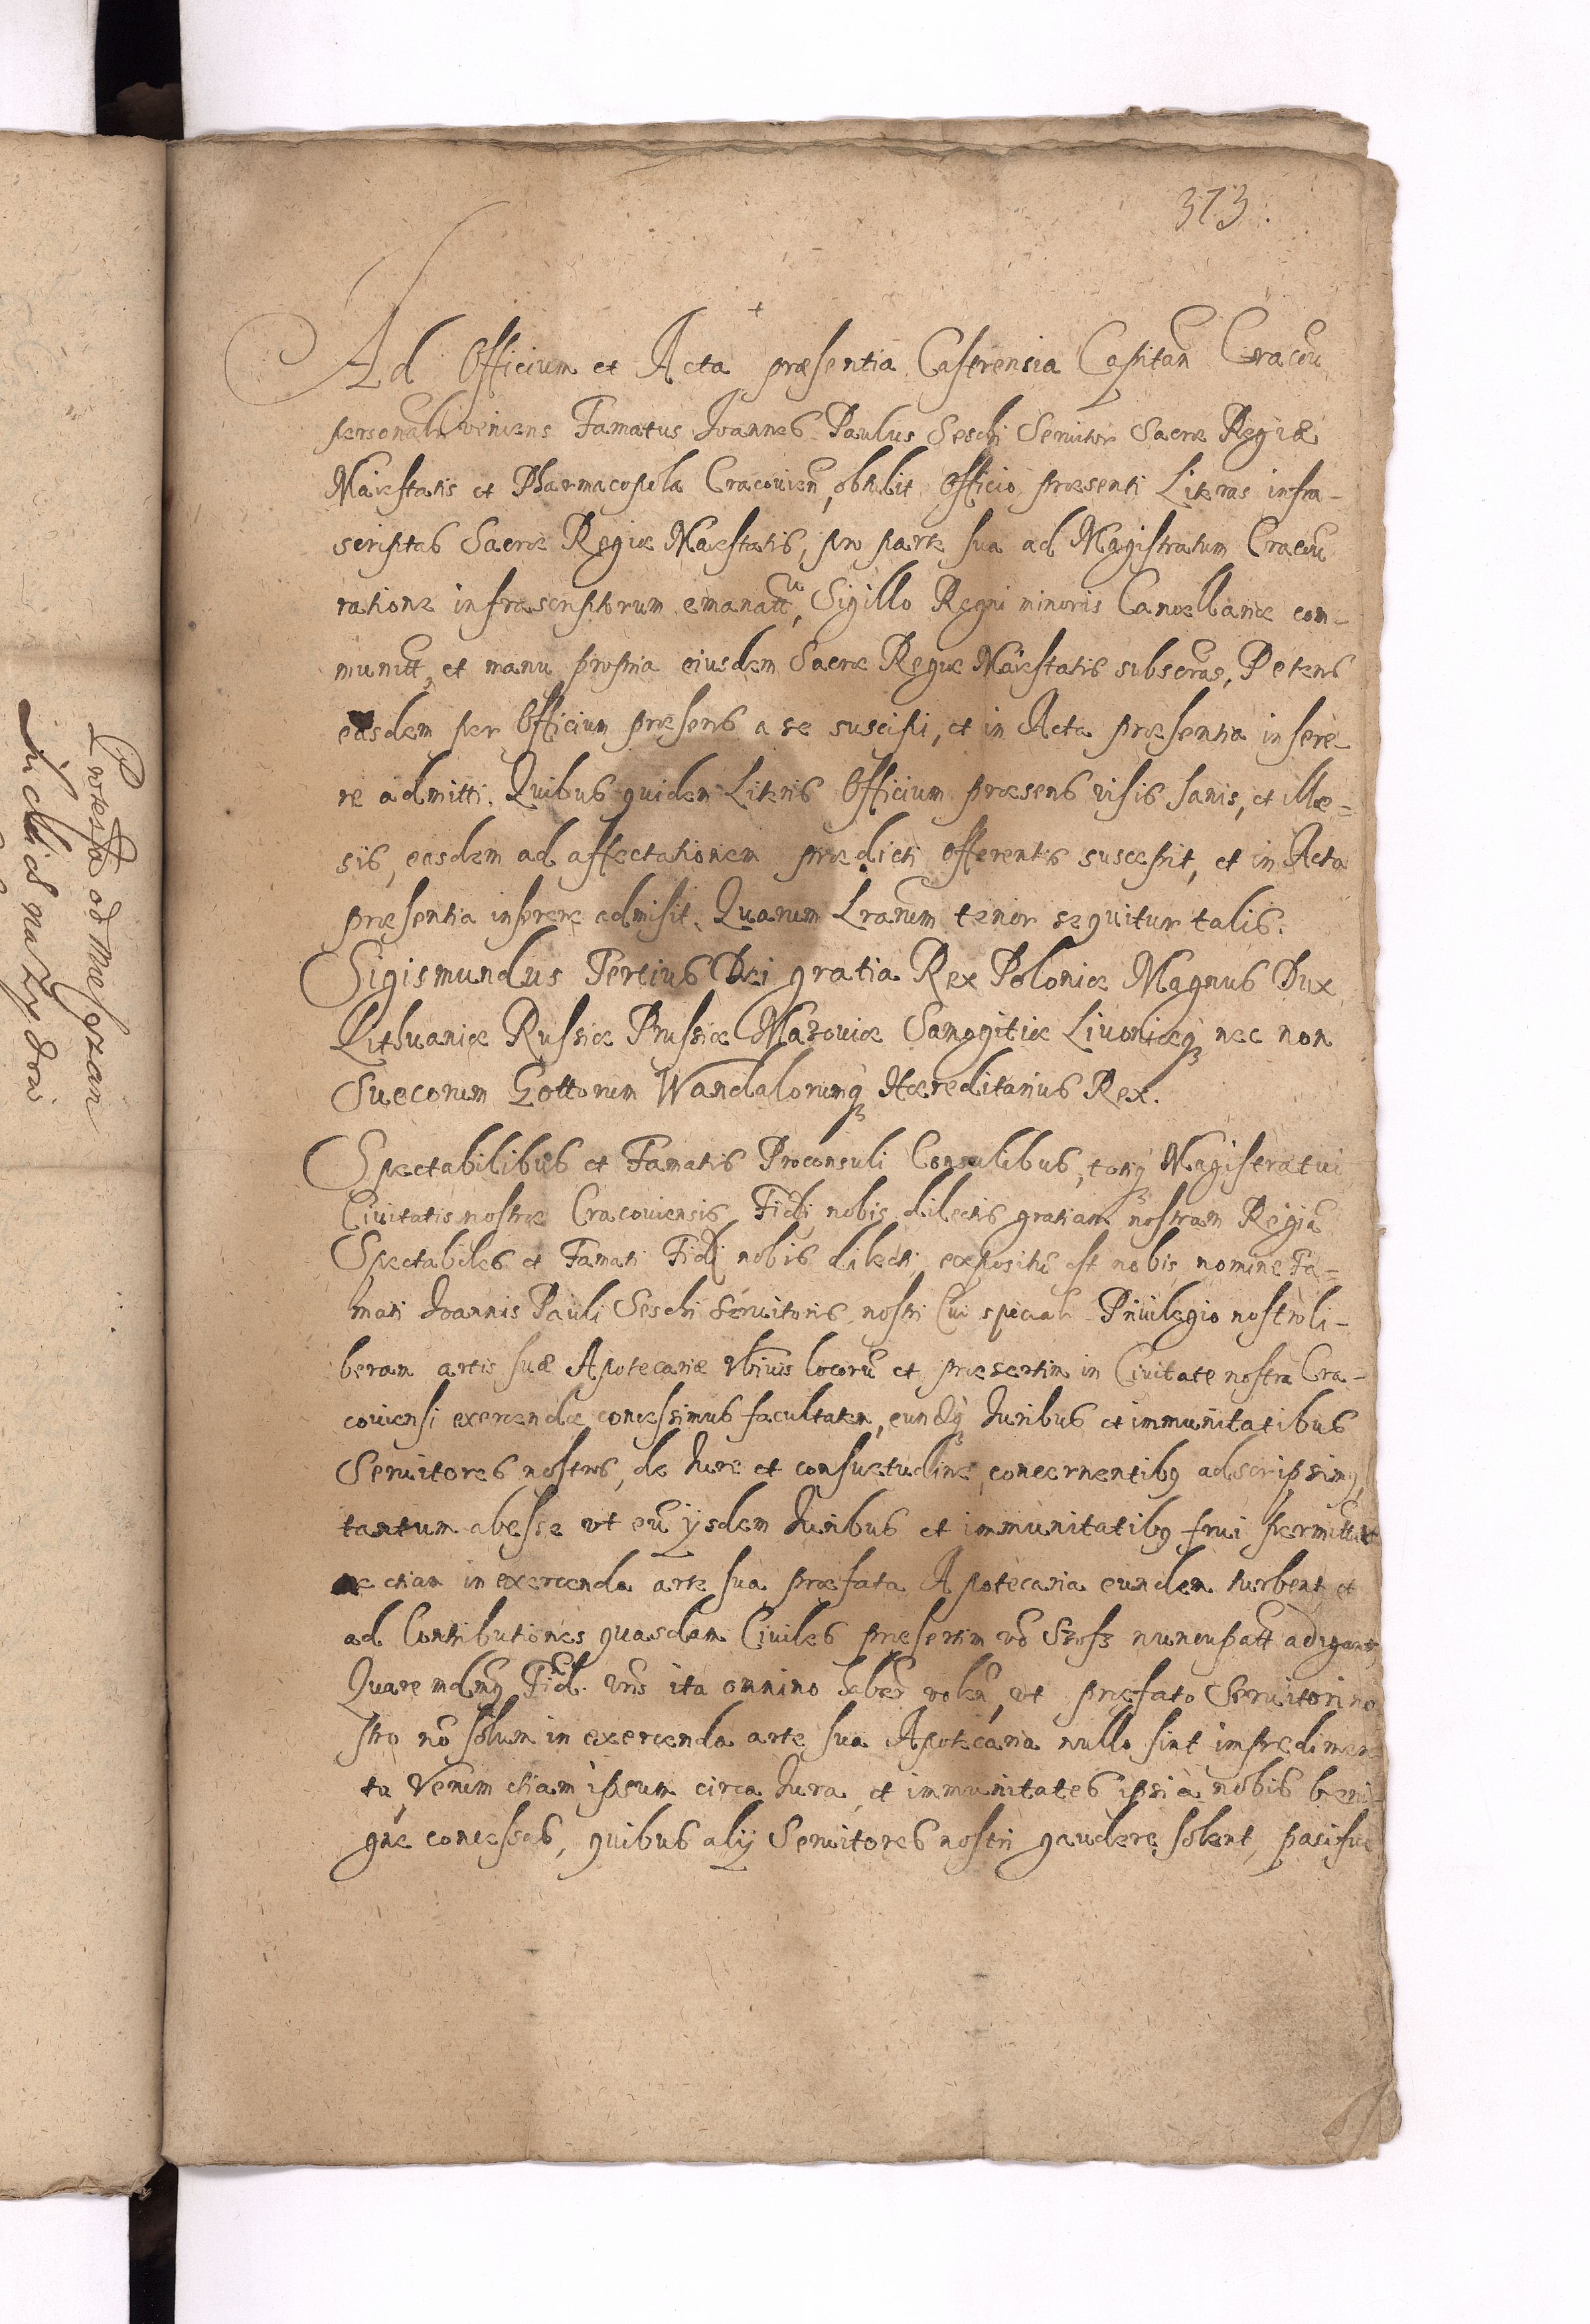 373.
Ad Officium et Acta præsentia Castrensia Capitan̄ Cracou̅
personal̅r veniens Famatus Joannes Paulus Seschi Seruitor Sacræ Regiæ
Maiestatis et Pharmacopola Cracouien̄, obtulit Officio præsenti Literas infra-
scriptas Sacræ Regiæ Maiestatis, pro parte sua ad Magistratum Cracou̅
ratione infrascriptorum emanatt, Sigillo Regni minoris Cancellariæ com-
munitt, et manu propria eiusdem Sacræ Regiæ Maiestatis subscras, Petens
easdem per Officium præsens a se suscipi, et in Acta præsentia insere-
re admitti. Quibus quidem Literis Officium præsens visis sanis, et ille=
sis, easdem ad affectationem prædicti offerentis suscepit, et in Acta
præsentia inserere admisit. Quarum Lrarum tenor sequitur talis.
Sigismundus Tertius Dei gratia Rex Poloniæ Magnus Dux
Lithuaniæ Russiæ Prussiæ Mazouiæ Samogitiæ Liuoniæqꝫ nec non
Suecorum Gottorum Wandalorumqꝫ Hæreditarius Rex.
Spectabilibus et Famatis Proconsuli Consulibus, totiqꝫ Magistratui
Ciuitatis nostræ Cracouiensis Fidi nobis dilectis gratiam nostram Regiā
Spectabiles et Famati Fidl nobis dilecti, expositū est nobis nomine Fa=
mati Joannis Pauli Seschi Seruitoris nostri Cui speciali Priuilegio nostro li-
beram artis suæ Apotecariæ vbiuis locorū et præsertim in Ciuitate nostra Cra-
couiensi exercendæ concessimus facultatem, eundqꝫ Iuribus et immunitatibus
Seruitores nostros, de Iure et consuetudine, concernentibꝯ adscripsimꝯ,
tantum abesse vt eū ijsdem Iuribus et immunitatibꝯ frui permittāt
ne etiam in exercenda arte sua præfata Apotecaria eundem turbent et
ad Contributiones quasdam Ciuiles præsertim vō Szosz nuncupatt adigant,
Quare mdmꝯ Fid. vris ita omnino haber̄ volen̄, vt præfato Seruitori no
stro nō solum in exercenda arte sua Apotecaria nullo sint impedimen
to, Verum etiam ipsum circa Iura, et immunitates ipsi a nobis beni-
gne concessas, quibus alij Seruitores nostri gaudere solent, pacifice